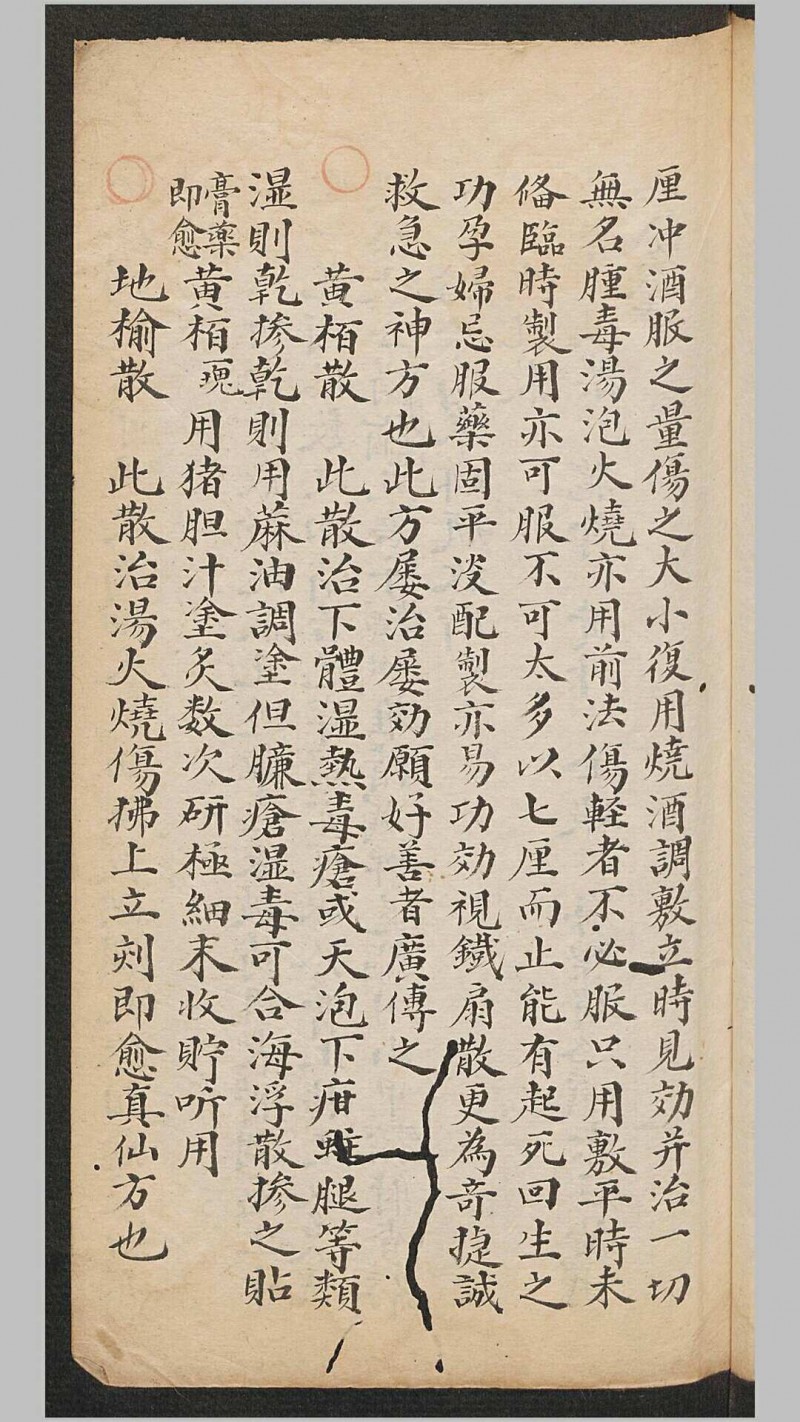 厘冲酒服之量傷之大小復用燒酒調敷立時見効并治一切
無名腫毒湯泡火燒亦用前法傷輕者不必服只用敷平時未
俻臨時製用亦可服不可太多以七厘而止能有起死回生之
功孕婦忌服藥固平淡配製亦易功効視鐵扇散更為奇㨗誠
救急之神方也此方屡治屡効願好善者廣傳之
黄栢散　此散治下體湿熱毒瘡或天泡下疳蛀腿等類
湿則乾掺乾則用蔴油調塗但臁瘡湿毒可合海浮散掺之貼
膏藥
即愈
黄栢
用猪胆汁塗炙数次研極細末收貯听用
地榆散　此散治湯火燒傷拂上立刻即愈真仙方也